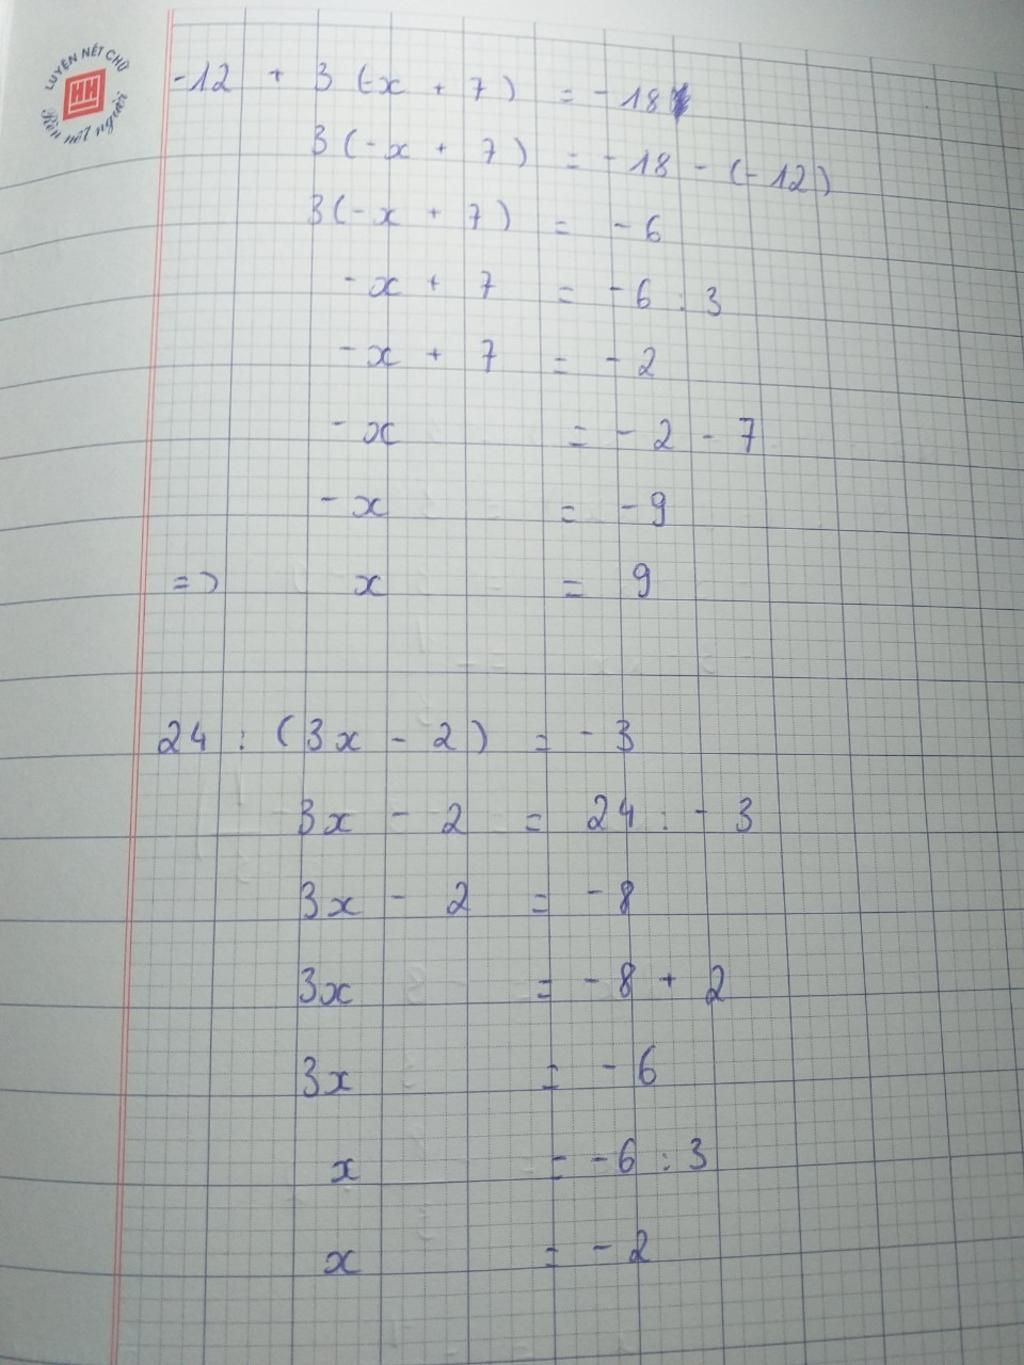 LUYỆN NÉT CHỮ
HH
Rèn nết người
-12 + 3 (-x + 7) = -18
3(-x + 7) = -18 - (-12)
3(-x + 7) = -6
-x + 7 = -6 : 3
-x + 7 = -2
-x = -2 - 7
-x = -9
=> x = 9
24 : (3x - 2) = -3
3x - 2 = 24 : -3
3x - 2 = -8
3x = -8 + 2
3x = -6
x = -6 : 3
x = -2